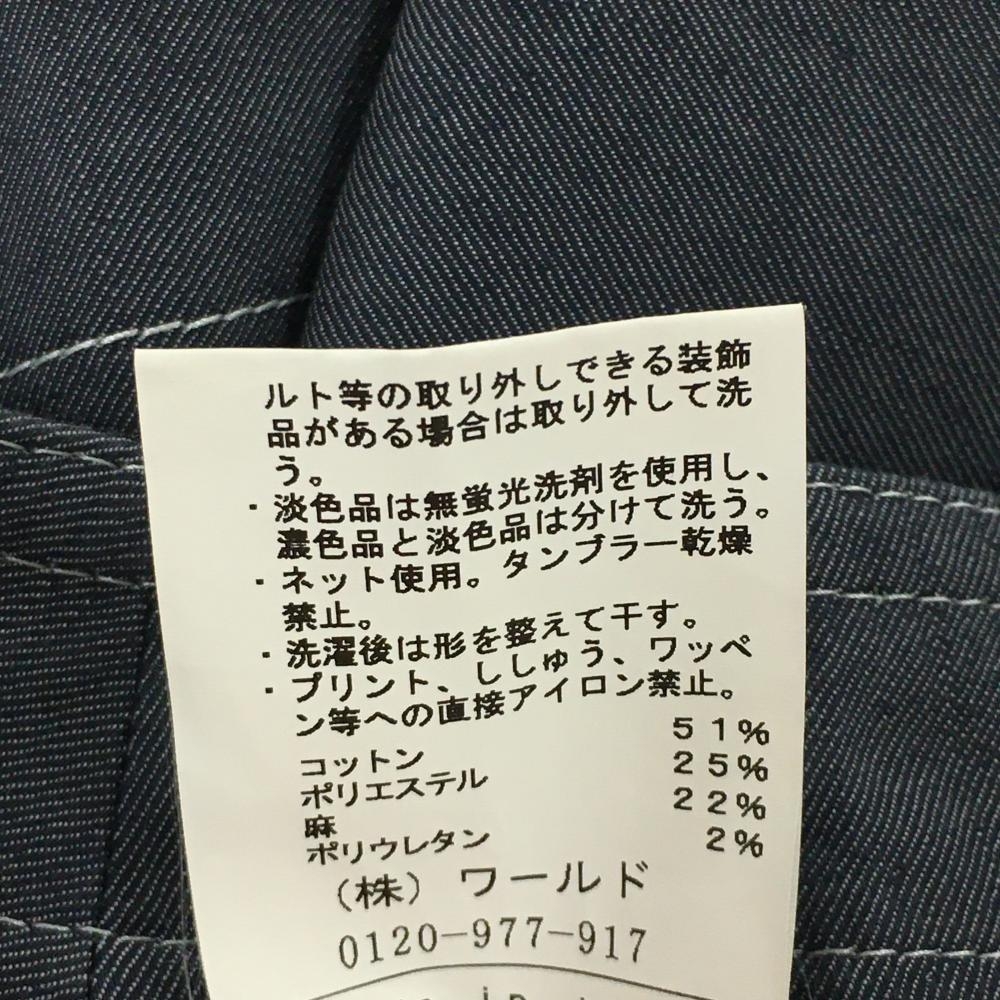 ルト等の取り外しできる装飾
品がある場合は取り外して洗
う。
・淡色品は無蛍光洗剤を使用し、
濃色品と淡色品は分けて洗う。
・ネット使用。タンブラー乾燥
禁止。
・洗濯後は形を整えて干す。
・プリント、ししゅう、ワッペ
ン等への直接アイロン禁止。
コットン 51%
ポリエステル 25%
麻 22%
ポリウレタン 2%
(株)ワールド
0120-977-917